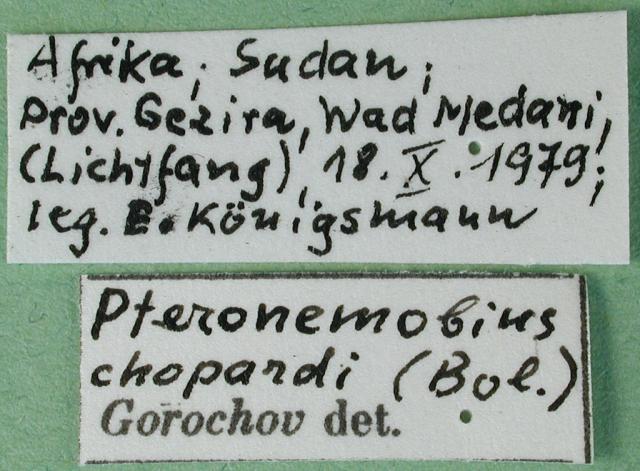 Afrika; Sudan;
Prov. Gezira, Wad Medani,
(Lichtfang), 18. X. 1979;
leg. E. Königsmann
Pteronemobius
chopardi (Bol.)
Gorochov det.